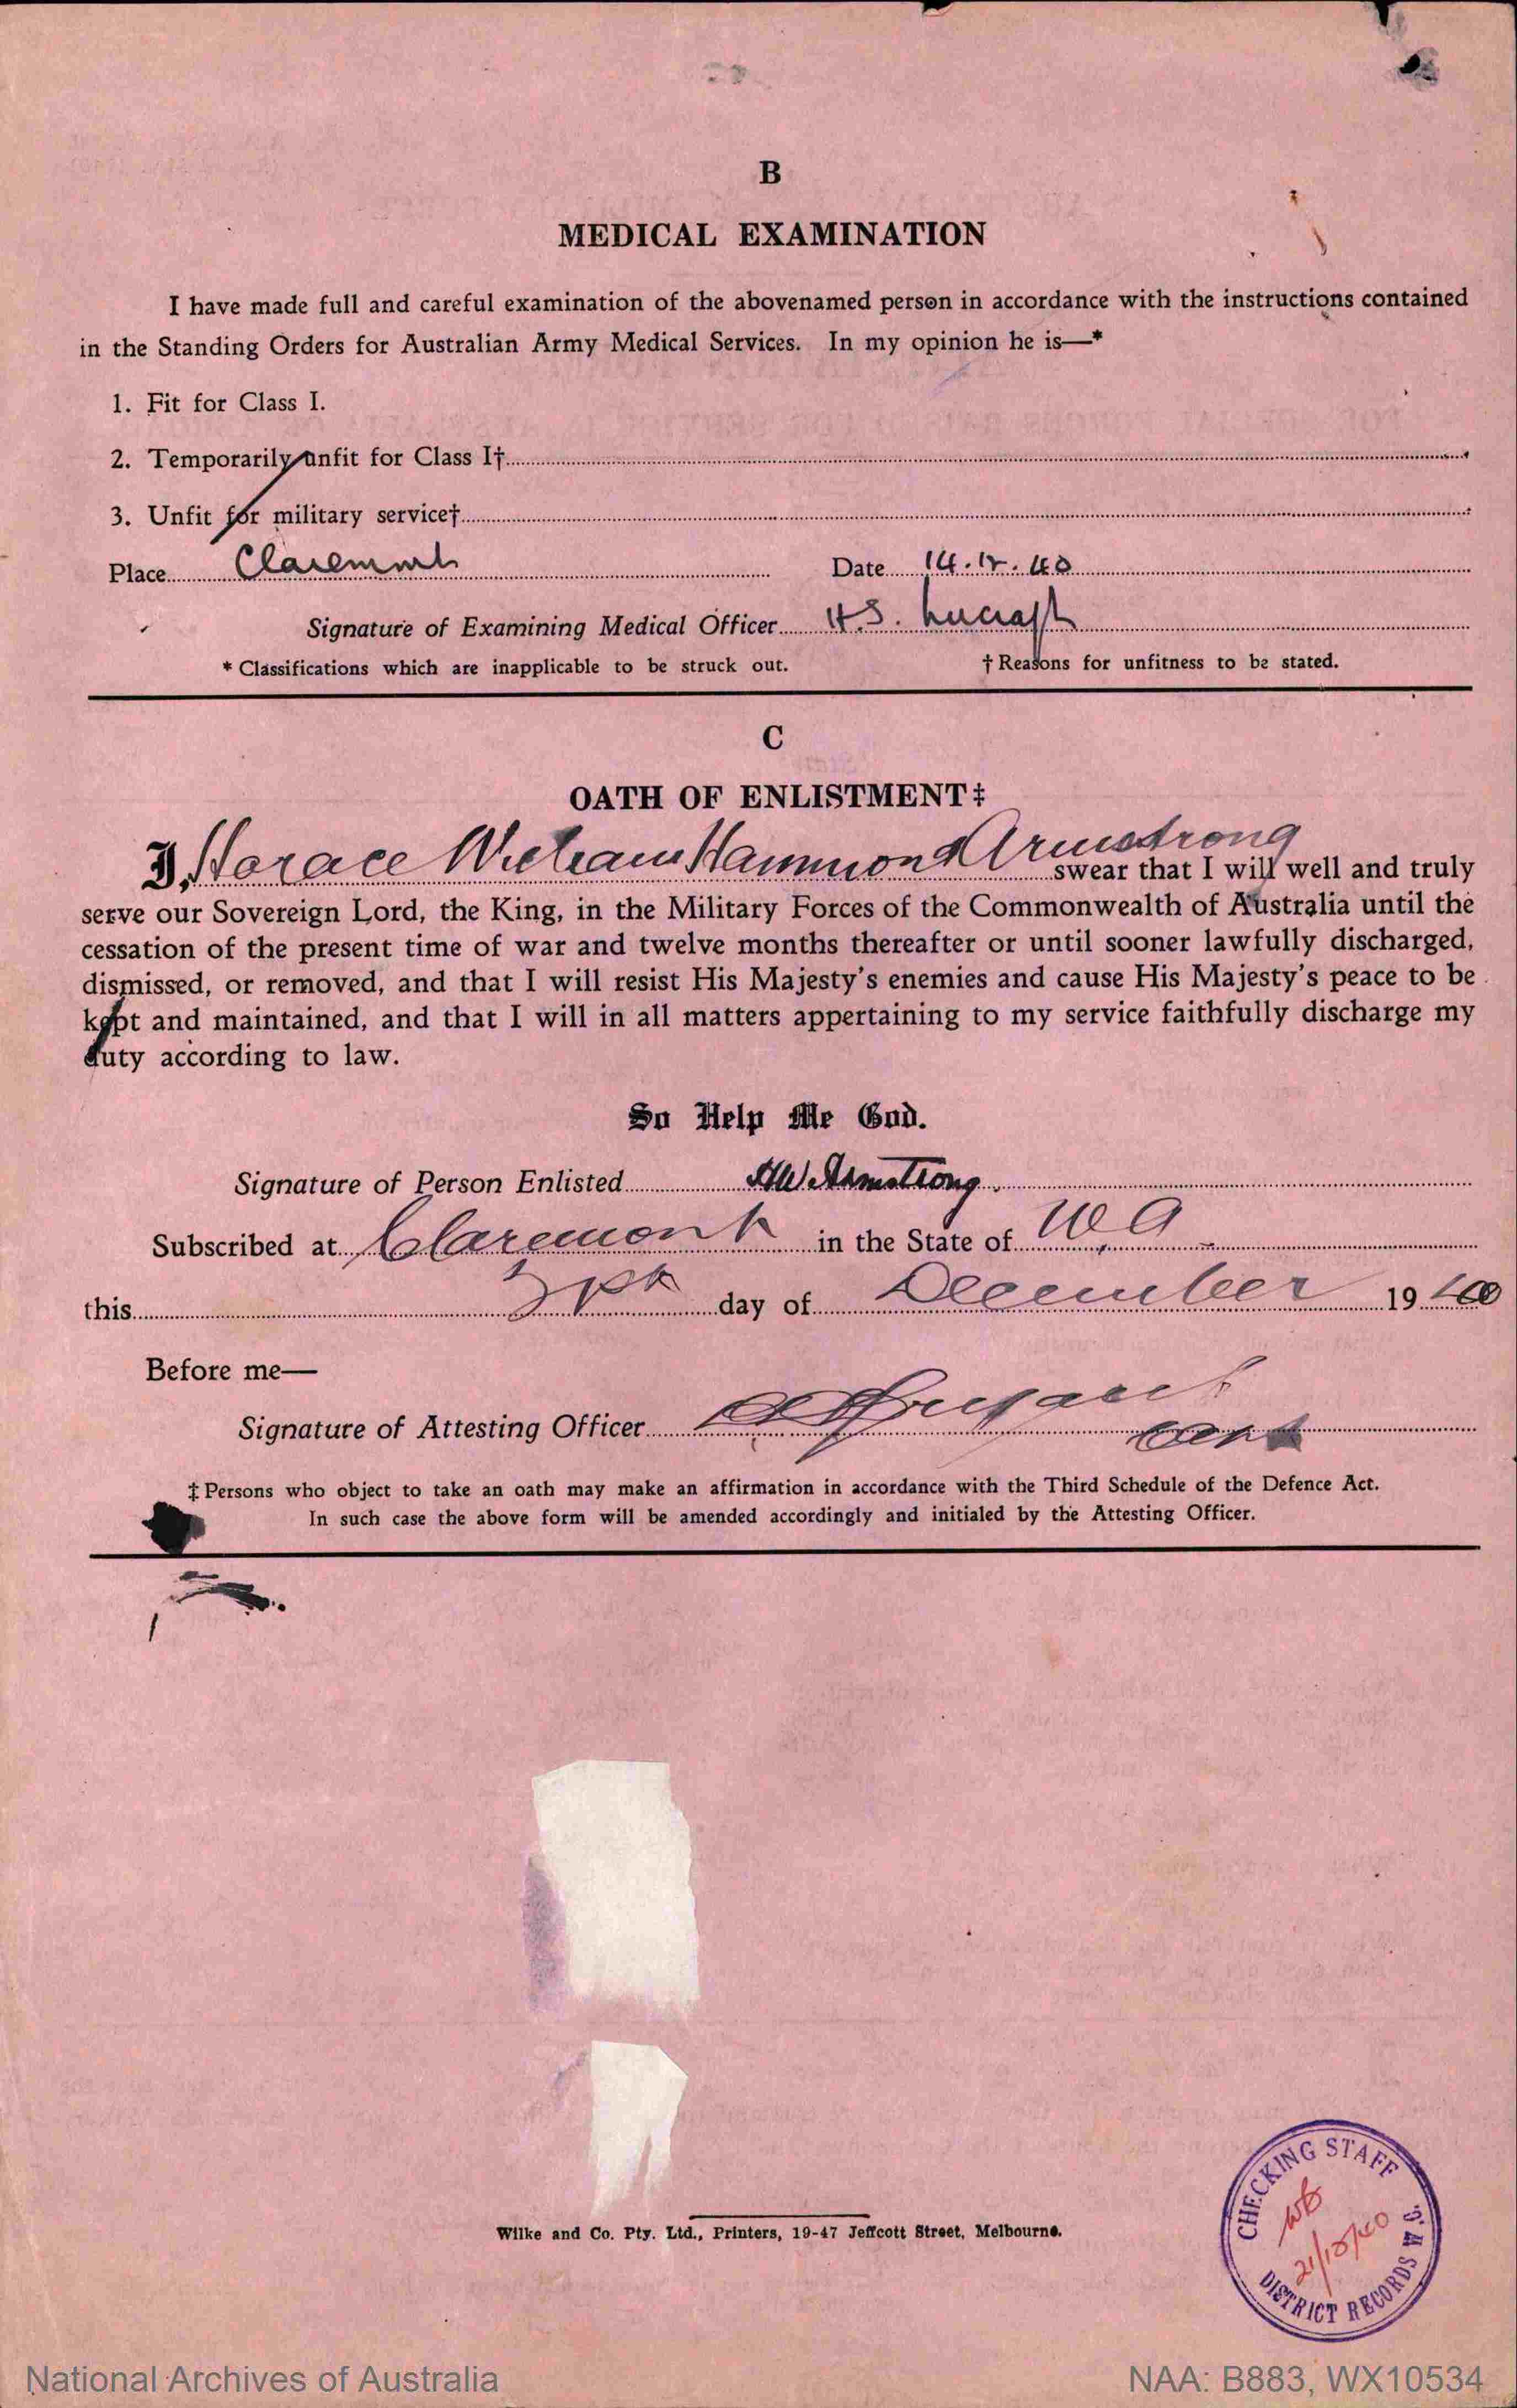 B
MEDICAL EXAMINATION
I have made full and careful examination of the abovenamed person in accordance with the instructions contained
in the Standing Orders for Australian Army Medical Services. In my opinion he is—*
1. Fit for Class I.
2. Temporarily unfit for Class I†
3. Unfit for military service†
Place Claremont Date 14.12.40
Signature of Examining Medical Officer H.S. Lucraft
* Classifications which are inapplicable to be struck out. † Reasons for unfitness to be stated.
C
OATH OF ENLISTMENT‡
I, Horace William Hammond Armstrong swear that I will well and truly
serve our Sovereign Lord, the King, in the Military Forces of the Commonwealth of Australia until the
cessation of the present time of war and twelve months thereafter or until sooner lawfully discharged,
dismissed, or removed, and that I will resist His Majesty's enemies and cause His Majesty's peace to be
kept and maintained, and that I will in all matters appertaining to my service faithfully discharge my
duty according to law.
So Help Me God.
Signature of Person Enlisted HW Armstrong
Subscribed at Claremont in the State of W A
this day of December 1940
Before me—
Signature of Attesting Officer
‡ Persons who object to take an oath may make an affirmation in accordance with the Third Schedule of the Defence Act.
In such case the above form will be amended accordingly and initialed by the Attesting Officer.
Wilke and Co. Pty. Ltd., Printers, 19-47 Jeffcott Street, Melbourne.
CHECKING STAFF
21/12/40
DISTRICT RECORDS
National Archives of Australia NAA: B883, WX10534